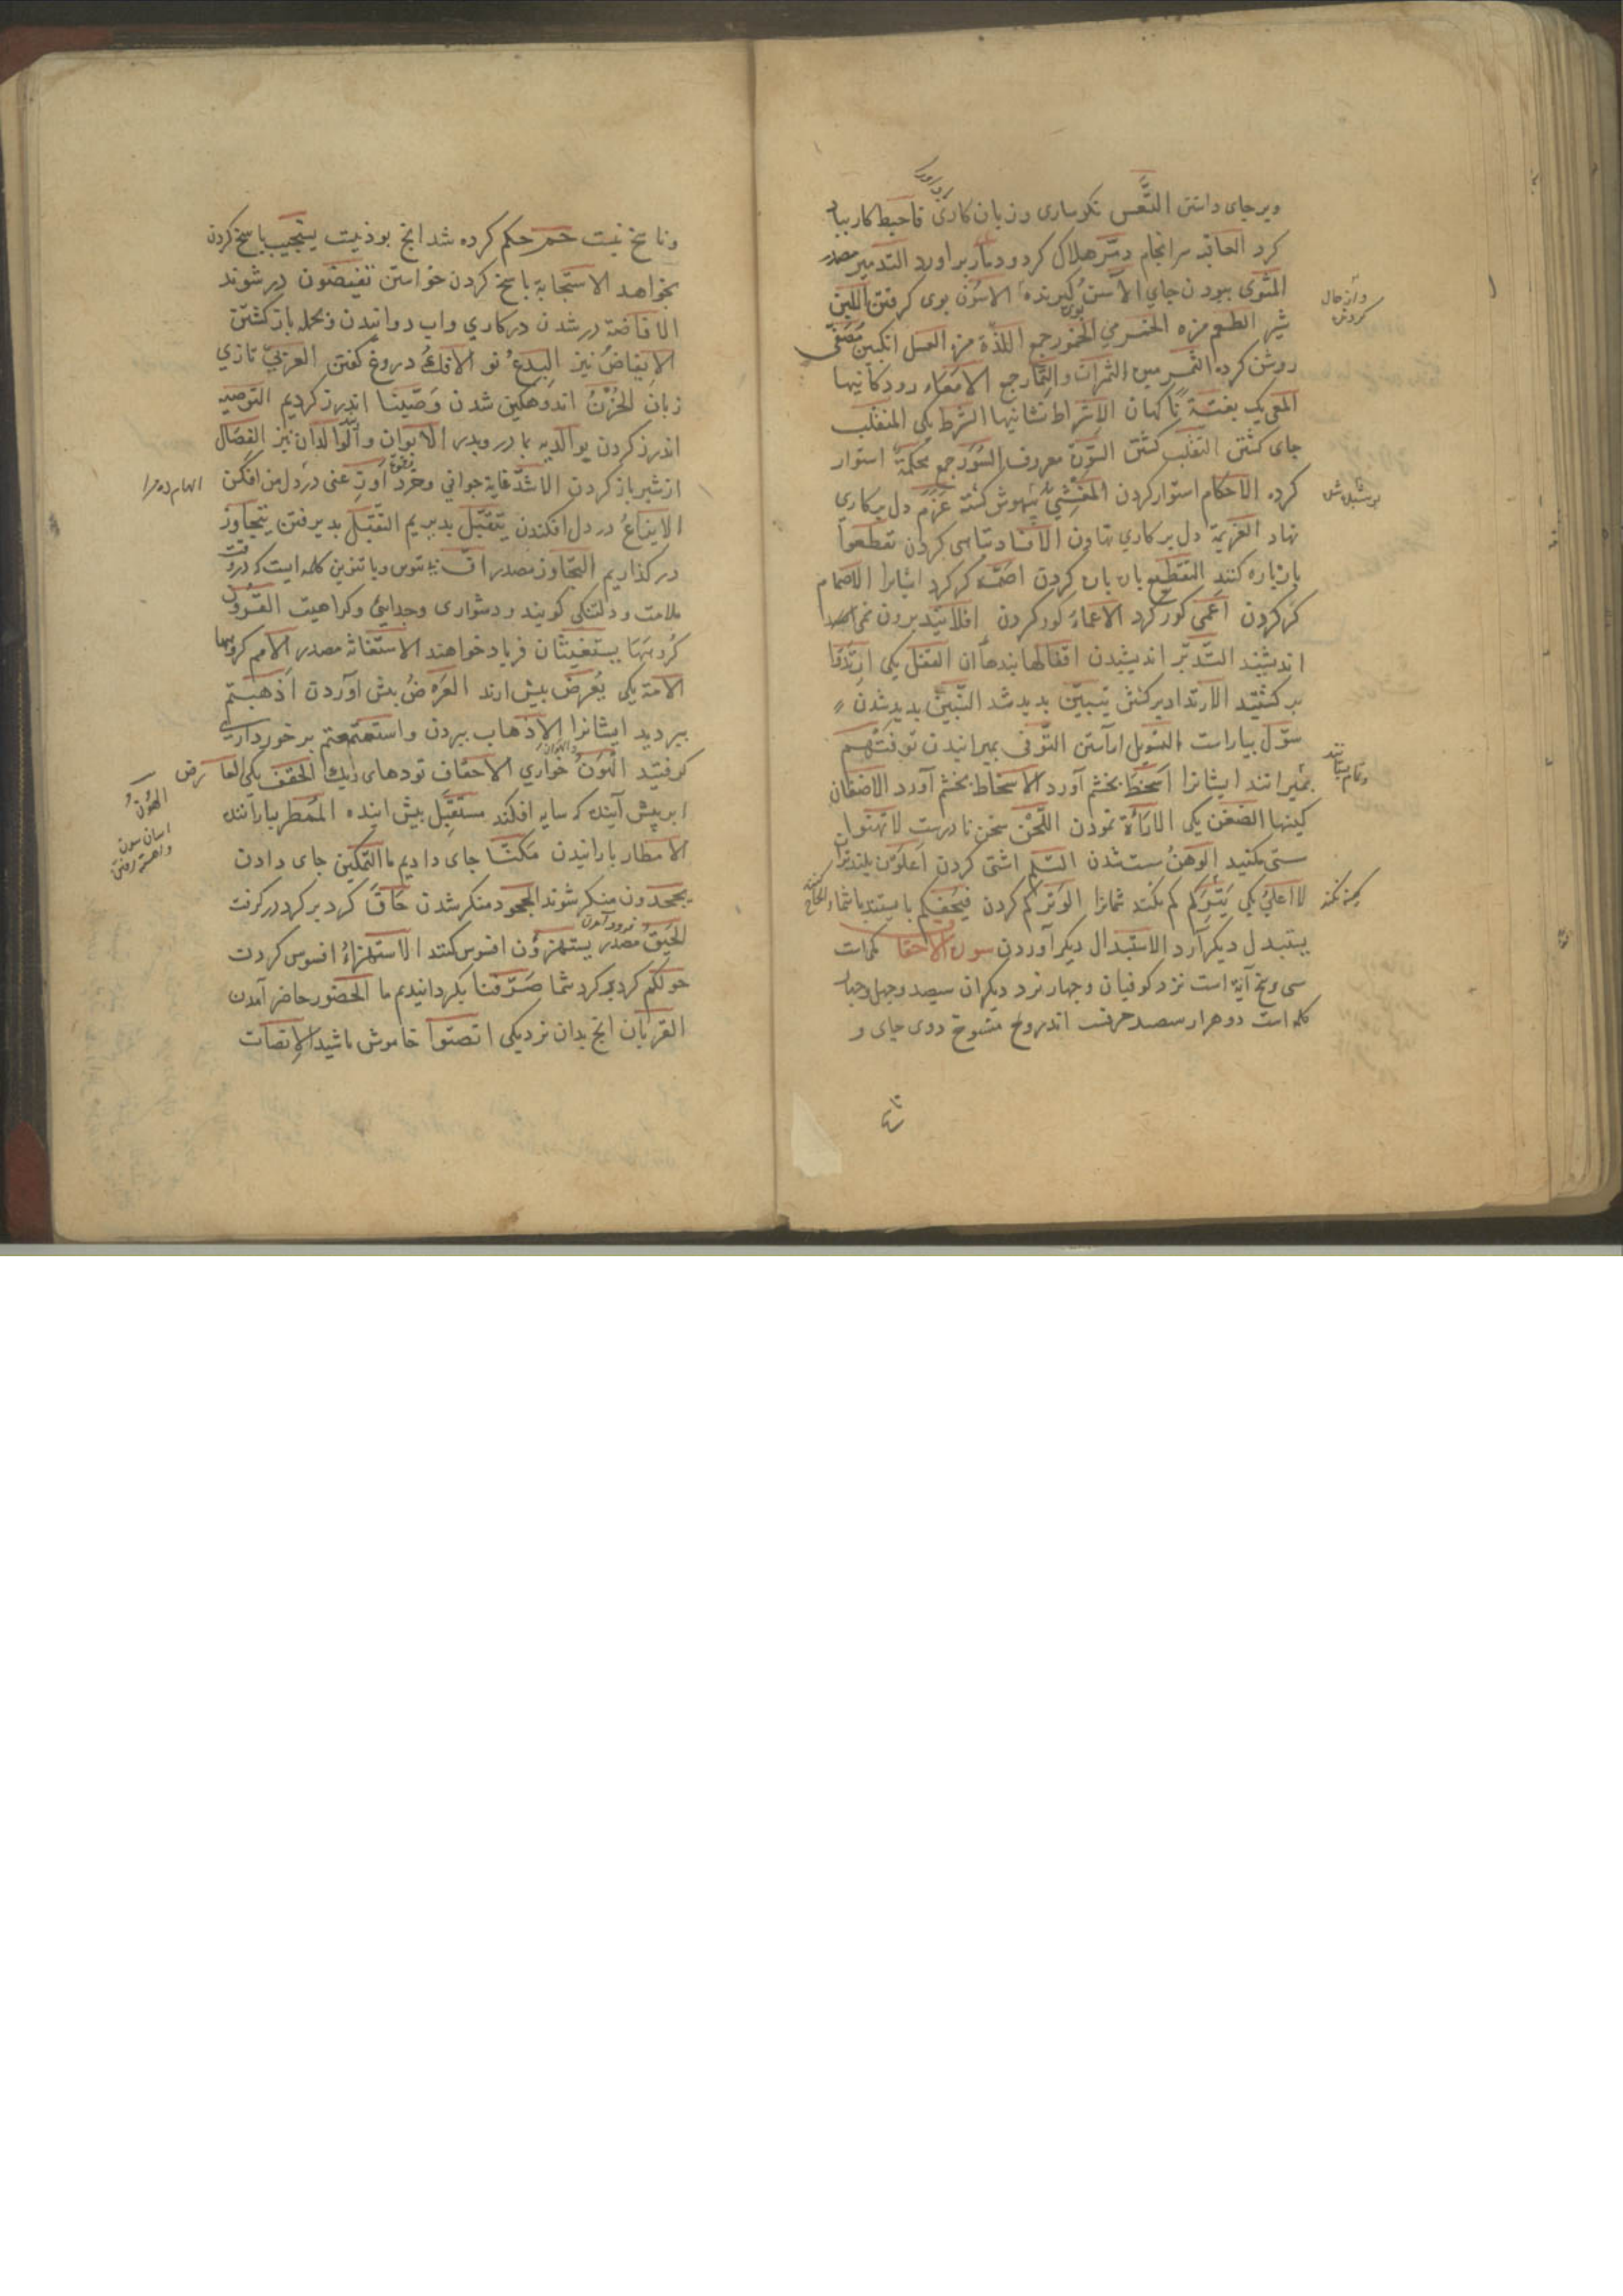 وبرجای داشتن التَّعس نکوساری و زیان کاری فاحبط کار بیاد
کرد العاقبه سرانجام دمّر هلاک کرد و دمار بر آورد التدمیر مصدر
المثوی ببودن جای الآسن کیرنده الاسون بوی کرفتن اللبن
شیر الطعم مزه الخمر می الخمور جمع اللذّة مزه العسل انکبین مصفّی
روشن کرده الثمر میوه الثمرات و الثمار جمع الامعاء رودکانیها
المعی یک بغتة ناکهان الاشراط نشانیها الشرط یکی المنقلب
جای کشتن التقلّب کشتن السورة معروف السور جمع محکمة استوار
کرده الاحکام استوار کردن المغشی بیهوش کشته عزم دل بر کاری
نهاد العزیمة دل بر کاری نهادن الافساد تباهی کردن تقطعوا
پاره پاره کنند التقطیع پاره پاره کردن اصمّهم کر کرد ایشانرا الاصمام
کر کردن اعمی کور کرد الاعماء کور کردن افلا یتدبرون
اندیشند التدبّر اندیشیدن اقفالها بندهاآن القفل یکی ارتدّوا
بر کشتند الارتداد برکشتن تبیّن بدید شد التبیّن بدید شدن
سوّل بیاراست التسویل آراستن التوفی بمیرانیدن توفتهم
بمیرانند ایشانرا اسخط بخشم آورد الاسخاط بخشم آورد الاضغان
کینها الضغن یکی الاراءة نمودن اللحن سخن نادرست لا تهنوا
سستی مکنید الوهن سست شدن السلم آشتی کردن اعلون بلندتران
الاعلی یکی یترکم کم بکند شمارا الوتر کم کردن فیحفکم
یستبدل دیکر آرد الاستبدال دیکر آوردن سورة الاحقاف مکی است
سی و پنج آیة است نزد کوفیان و چهار نزد دیکران سیصد و چهل و چهار
کلمه است دو هزار سیصد حرفست اندرو منسوخ دوی جای و
و ناسخ نیست حم حکم کرده شد انچ بوذنیست یستجیب پاسخ کردن
بخواهد الاستجابة پاسخ کردن خواستن تفیضون در شوند
الافاضة در شدن در کاری و اب دوانیدن و بحمله باز کشتن
الایفاض نیز البدع نو الافک دروغ کفتن العربی تازی
زبان الحزن اندوهکین شدن وصّینا اندرز کردیم التوصیه
اندرز کردن بوالدیه مادر و پدر الابوان و الوالدان نیز الفصال
از شیر باز کردن الاشد غایة جوانی و خرد اوزعنی در دل من افکن
الهام ده مرا
الایزاع در دل افکندن یتقبّل بدیریم التقبّل بدیرفتن یتجاوز
در کذاریم التجاوز مصدر افّ بی تنوین و با تنوین کلمه ایست که در وقت
ملامت و دلتنکی کویند و دشواری و جدایی و کراهیت القرون
کروهها یستغیثان فریاد خواهند الاستغاثه مصدر الامم کروهها
الامة یکی یعرض بیش ارند العرض بیش آوردن اذهبتم
ببردید ایشانرا الاذهاب ببردن و استمتعتم برخورداری
کرفتید الهون خواری الاحقاف تودهای ریک الحقف یکی العارض
الهون
اسان شدن
و آهسته رفتن
ابر پیش آینده که سایه افکند مستقبل پیش اینده الممطر باراننده
الامطار بارانیدن مکنّا جای دادیم ما التمکین جای دادن
یجحدون منکر شوند الجحود منکر شدن حاق کرد بر کرد در کرفت
فرود آمدن
الحیق مصدر یستهزؤن افسوس کنند الاستهزاء افسوس کردن
حولکم کرد بر کرد شما صرّفنا بکردانیدیم ما الحضور حاضر آمدن
القربان انچ بدان نزدیکی انصتوا خاموش باشید الانصات